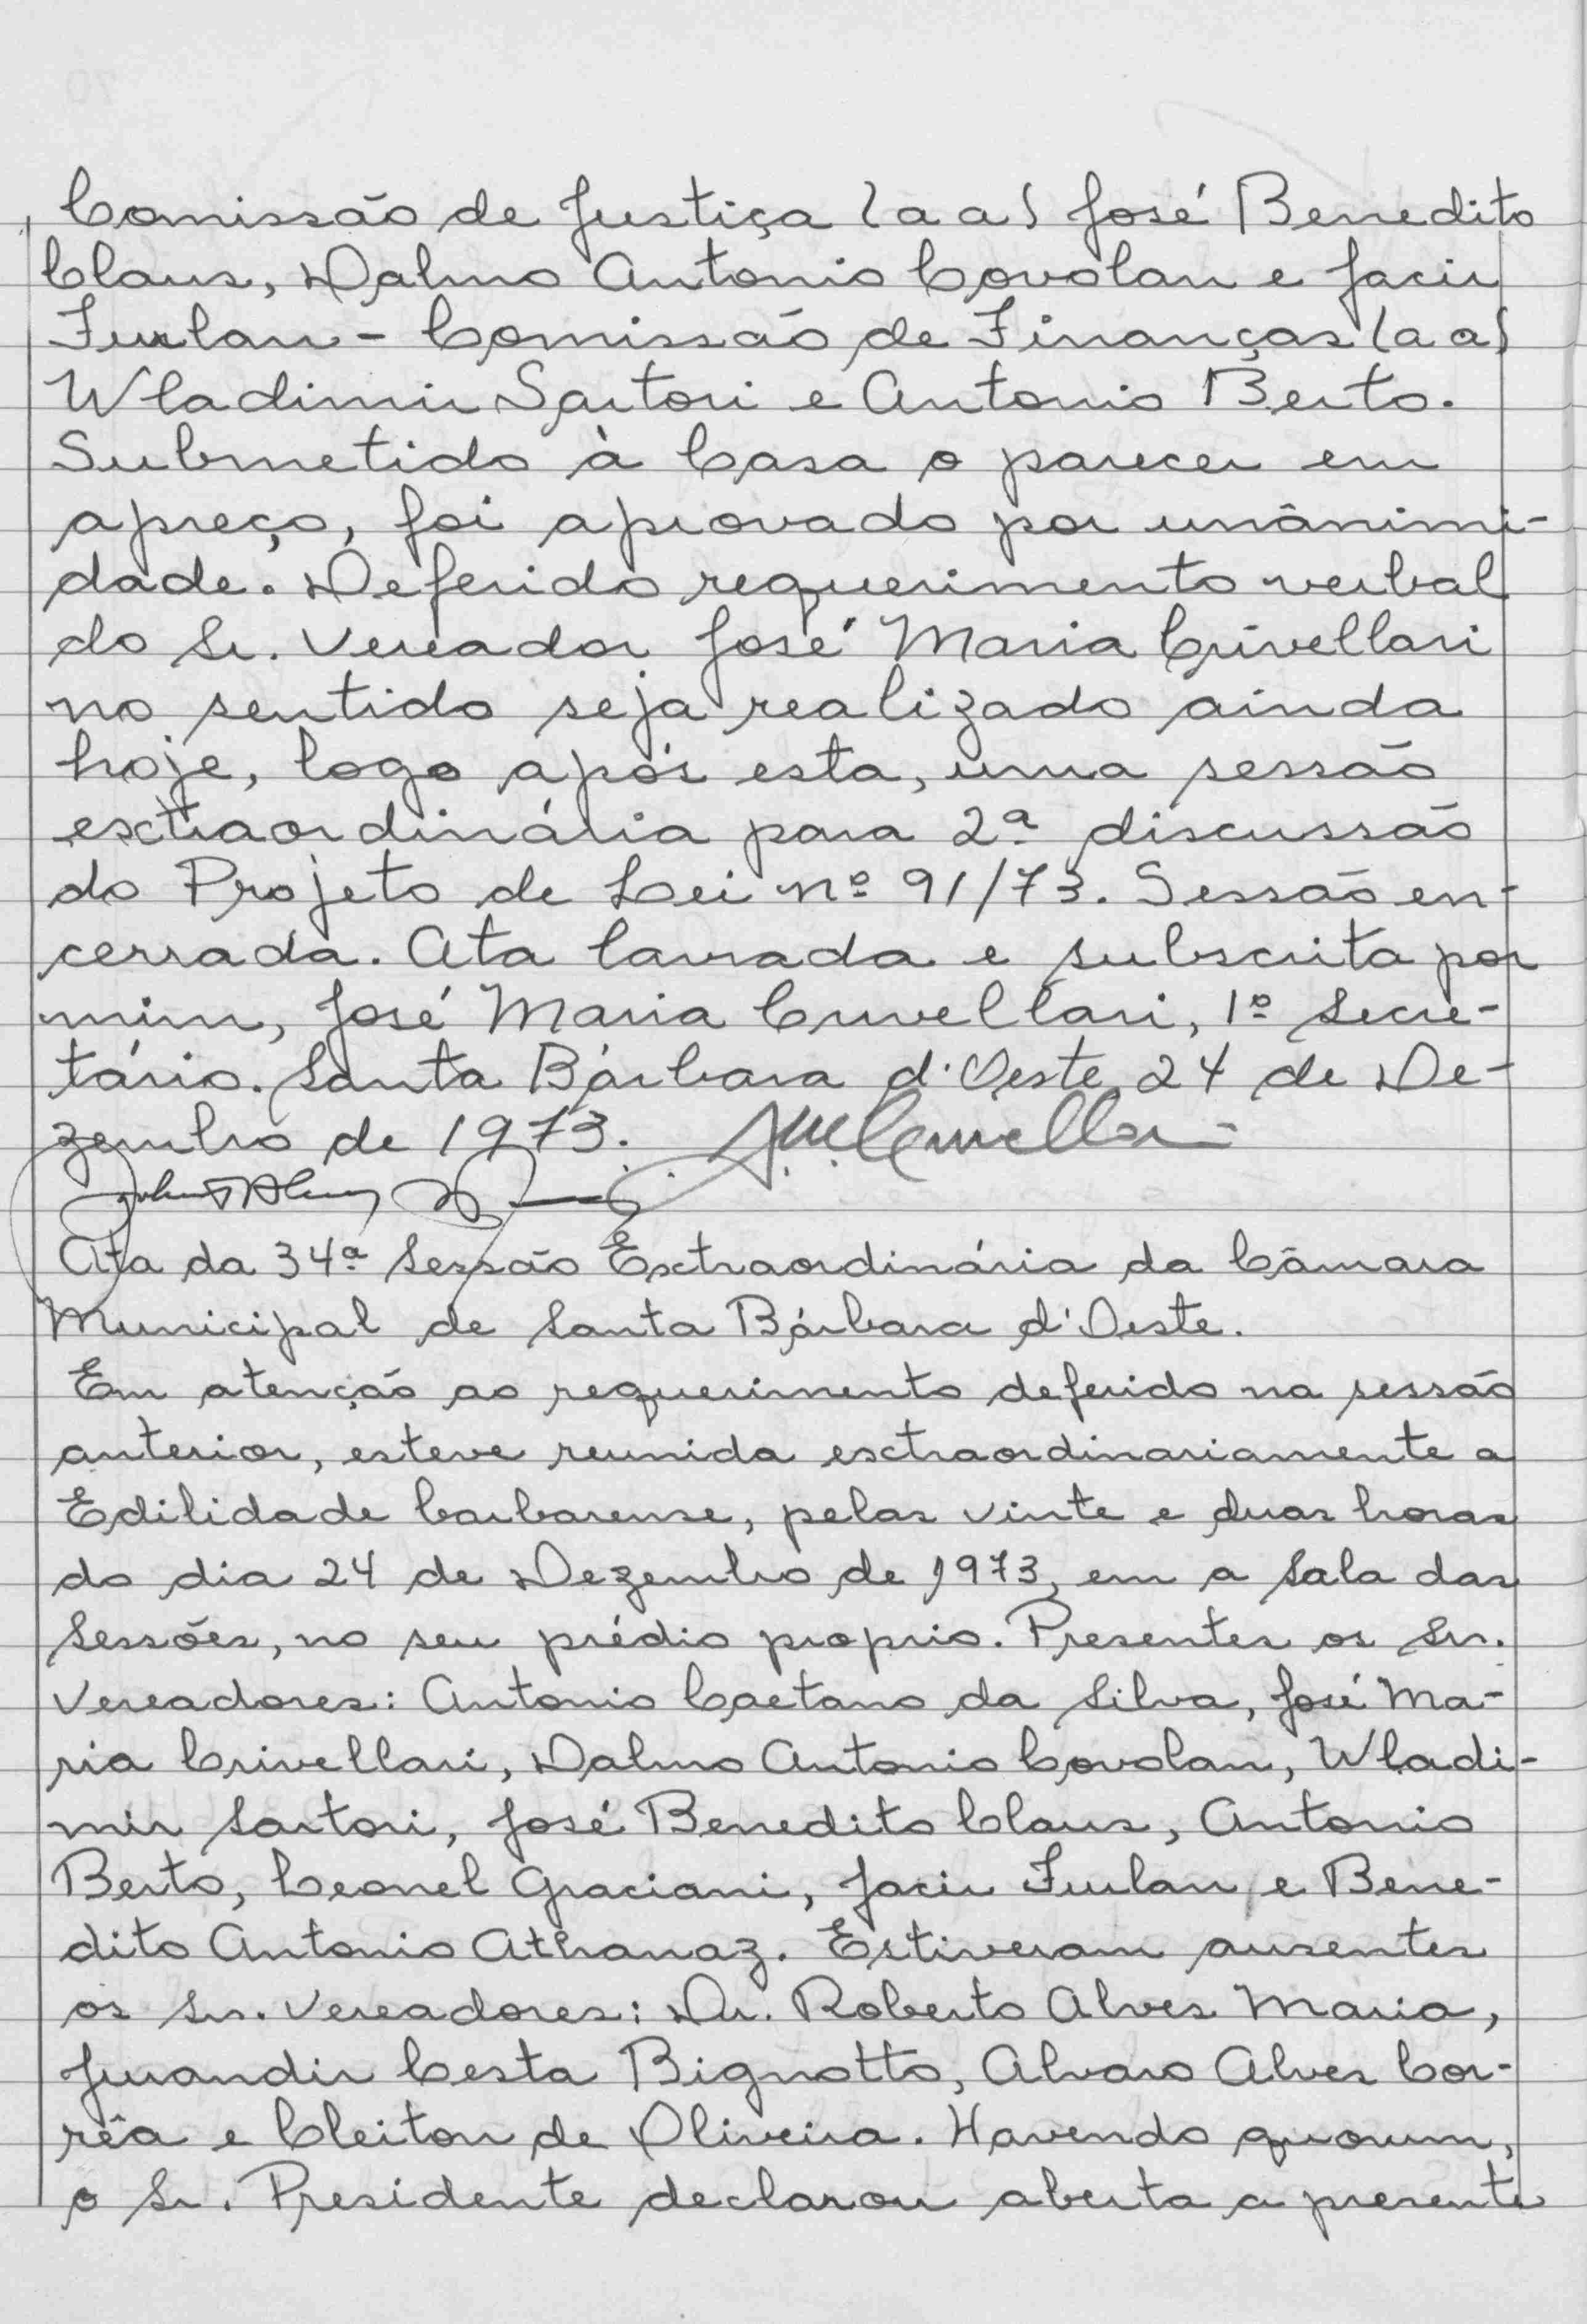 Comissão de Justiça (a a) José Benedito
Claus, Dalmo Antonio Covolan e Jacir
Furlan - Comissão de Finanças (a a)
Wladimir Sartori e Antonio Berto.
Submetido à Casa o parecer em
apreço, foi aprovado por unânimi-
dade. Deferido requerimento verbal
do Sr. Vereador José Maria Crivellari
no sentido seja realizado ainda
hoje, logo após esta, uma sessão
extraordinária para 2ª discussão
do Projeto de Lei nº 91/73. Sessão en-
cerrada. Ata lavrada e subscrita por
mim, José Maria Crivellari, 1º Secre-
tário. Santa Bárbara d'Oeste, 24 de De-
zembro de 1973.
Ata da 34ª Sessão Extraordinária da Câmara
Municipal de Santa Bárbara d'Oeste.
Em atenção ao requerimento deferido na sessão
anterior, esteve reunida extraordinariamente a
Edilidade barbarense, pelas vinte e duas horas
do dia 24 de Dezembro de 1973, em a Sala das
Sessões, no seu prédio proprio. Presentes os Srs.
Vereadores: Antonio Caetano da Silva, José Ma-
ria Crivellari, Dalmo Antonio Covolan, Wladi-
mir Sartori, José Benedito Claus, Antonio
Berto, Leonel Graciani, Jacir Furlan e Bene-
dito Antonio Athanaz. Estiveram ausentes
os Srs. Vereadores: Dr. Roberto Alves Maria,
Jurandir Cesta Bignotto, Alvaro Alves Cor-
rêa e Cleiton de Oliveira. Havendo quorum,
o Sr. Presidente declarou aberta a presente